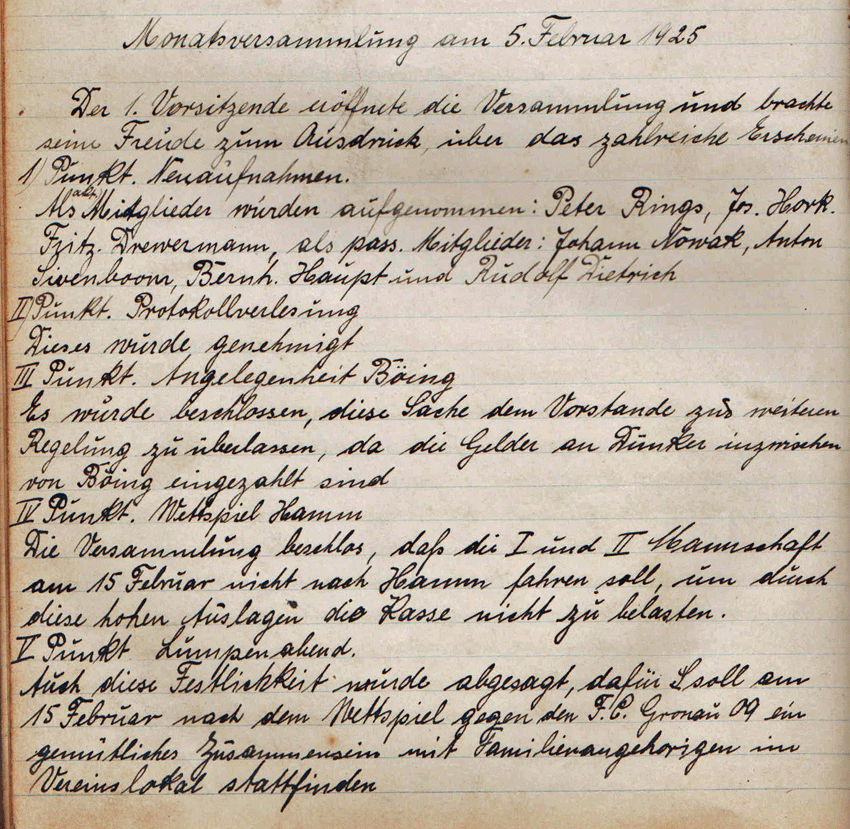 Monatsversammlung am 5. Februar 1925
Der 1. Vorsitzende eröffnete die Versammlung und brachte
seine Freude zum Ausdruck, über das zahlreiche Erscheinen
1) Punkt. Neuaufnahmen.
Als akt. Mitglieder wurden aufgenommen: Peter Rings, Jos. Hork.
Fritz. Drewermann, als pass. Mitglieder: Johann Nowak, Anton
Sivenboom, Bernh. Haupt und Rudolf Dietrich
II) Punkt. Protokollverlesung
Dieses wurde genehmigt
III Punkt. Angelegenheit Böing
Es wurde beschlossen, diese Sache dem Vorstande zur weiteren
Regelung zu überlassen, da die Gelder an Dunker inzwischen
von Böing eingezahlt sind
IV Punkt. Wettspiel Hamm
Die Versammlung beschlos, daß die I und II Mannschaft
am 15 Februar nicht nach Hamm fahren soll, um durch
diese hohen Auslagen die Kasse nicht zu belasten.
V Punkt Lumpenabend.
Auch diese Festlichkeit wurde abgesagt, dafür soll am
15 Februar nach dem Wettspiel gegen den F.C. Gronau 09 ein
gemütliches Zusammensein mit Familienangehörigen im
Vereinslokal stattfinden